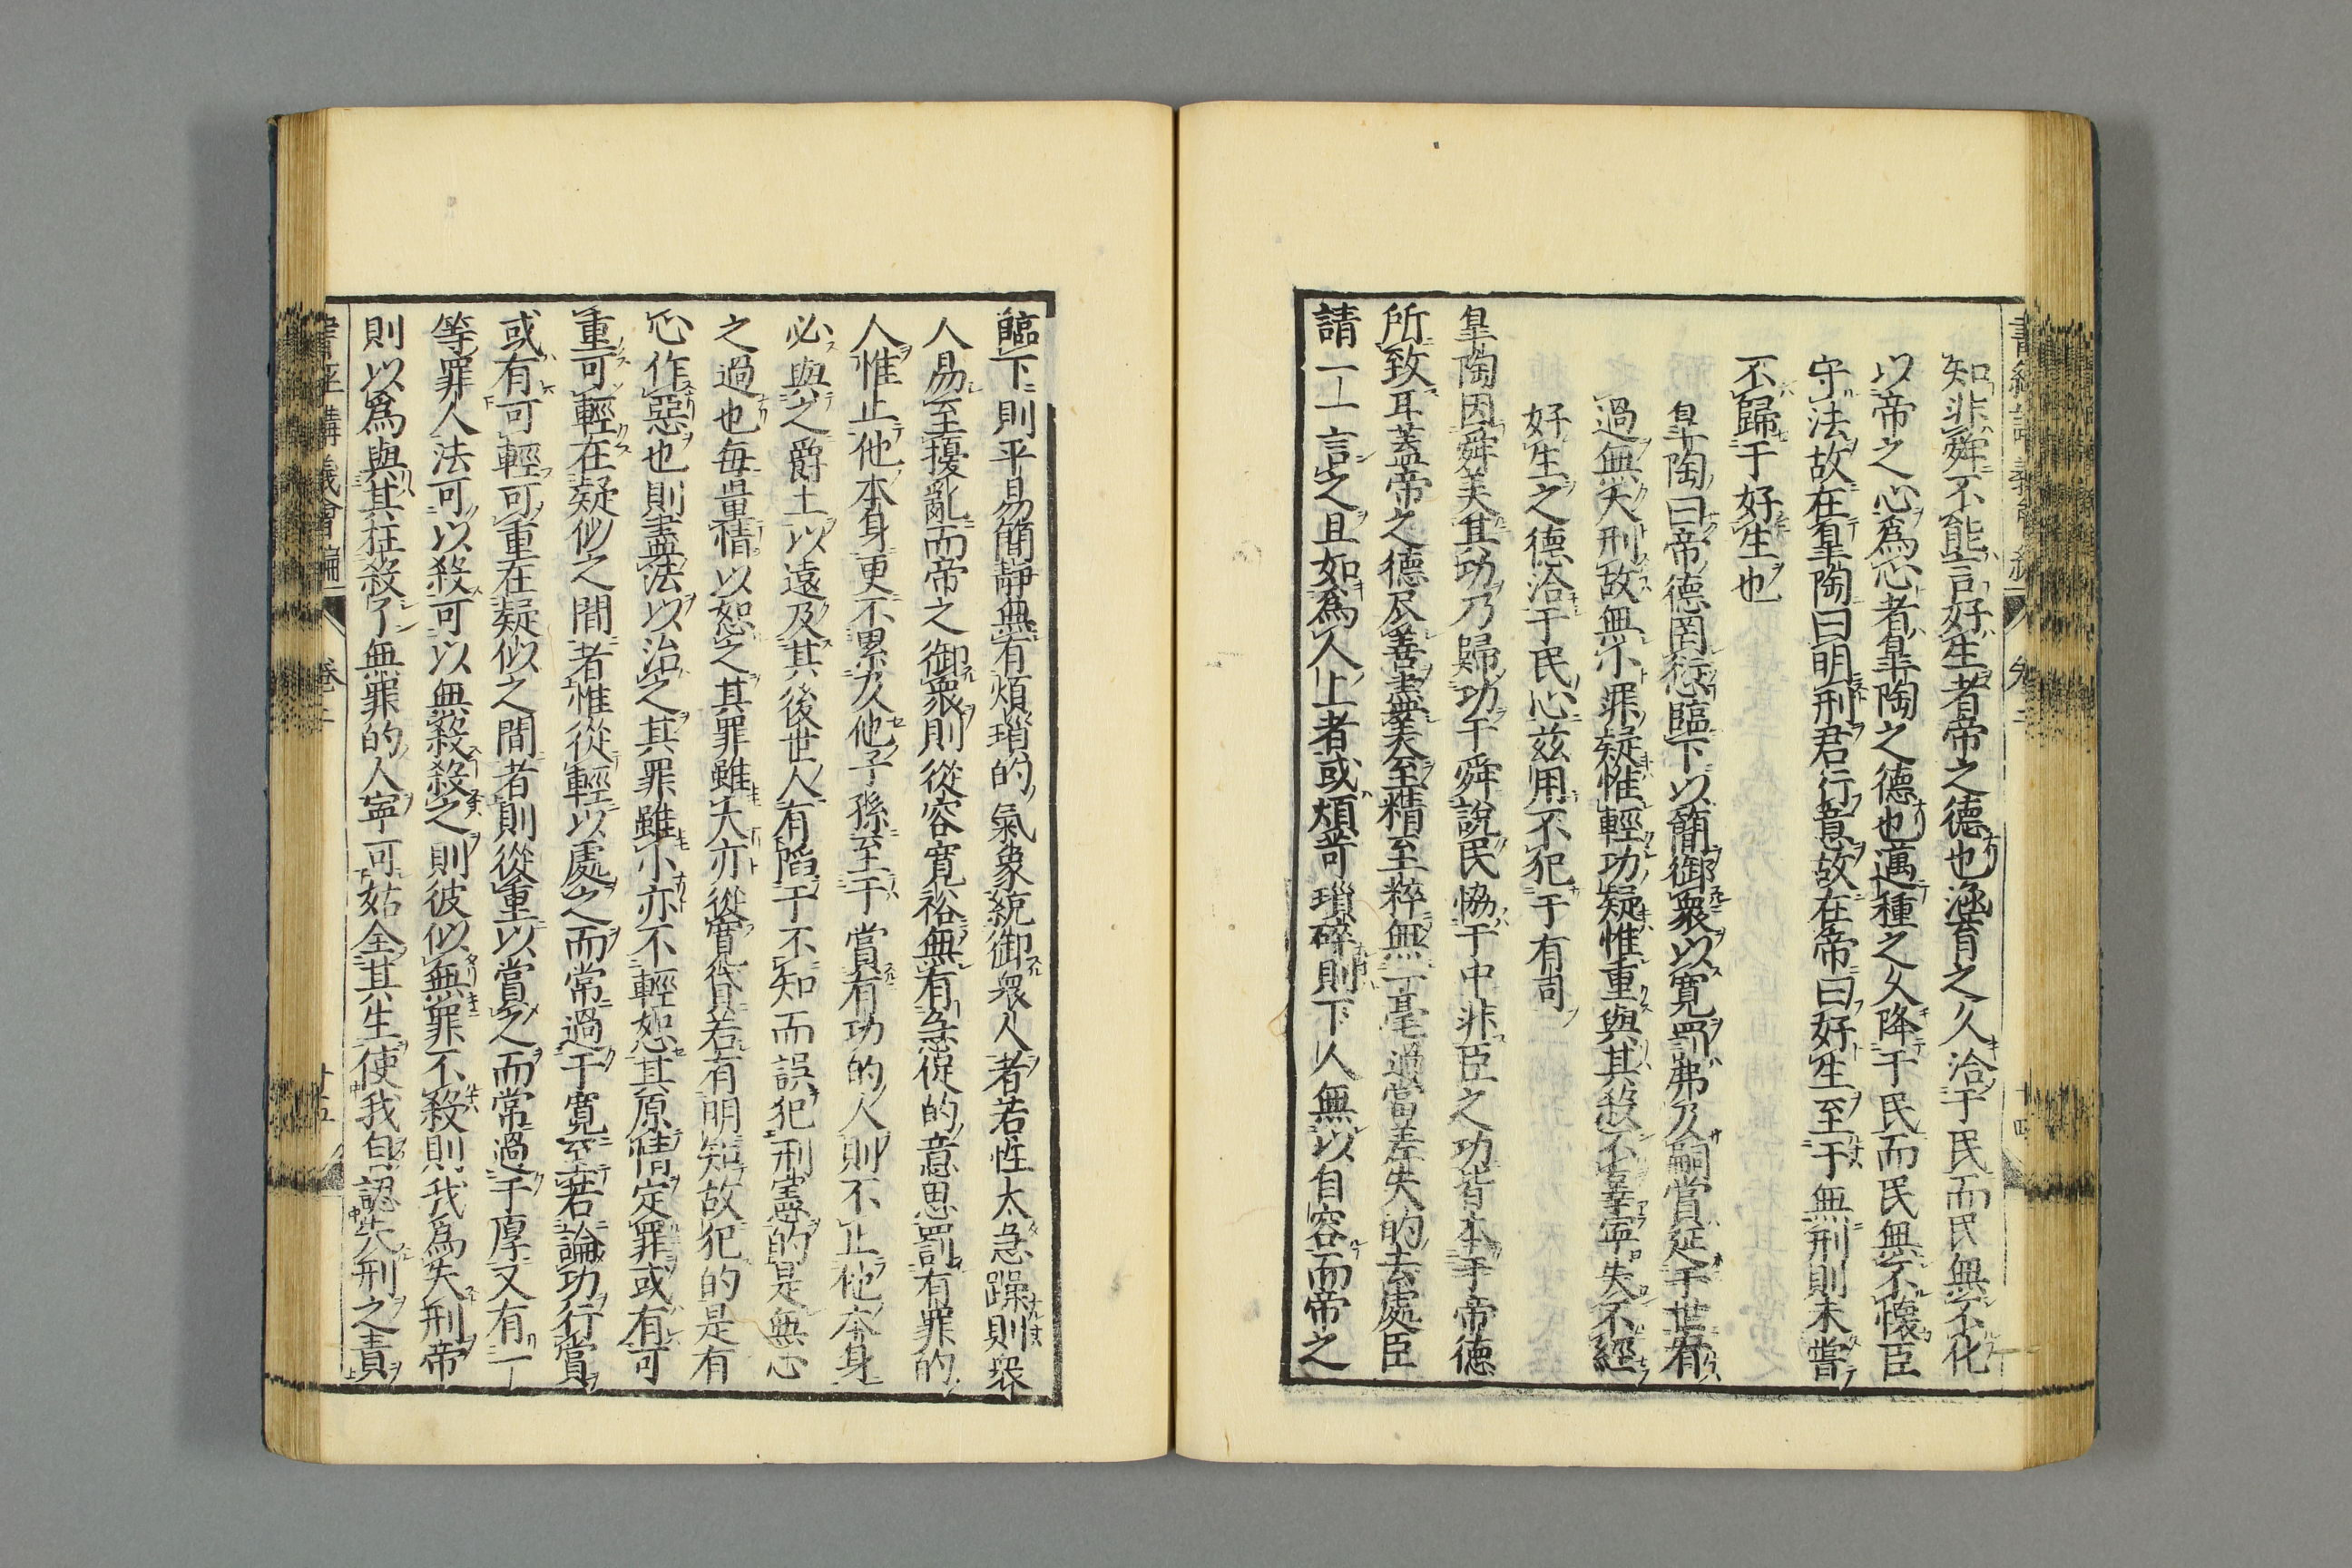 知非舜不能言好生者帝之德也涵育之久洽于民而民無不化
以帝之心爲心者皐陶之德也邁種之久降于民而民無不懷臣
守法故在皐陶曰明刑君行意故在帝曰好生至于無刑則未嘗
不歸于好生也
皐陶曰帝德罔愆臨下以簡御衆以寬罰弗及嗣賞延于世宥
過無大刑故無小罪疑惟輕功疑惟重與其殺不辜寧失不經
好生之德洽于民心茲用不犯于有司
皐陶因舜美其功乃歸功于舜說民協于中非臣之功皆本于帝德
所致耳蓋帝之德尽善盡美至精至粹無一毫過當差失的去處臣
請一一言之且如爲人上者或煩苛瑣碎則下人無以自容而帝之
臨下則平易簡靜無有煩瑣的氣象統御衆人者若性太急躁則衆
人易至擾亂而帝之御衆則從容寬裕無有急促的意思罰有罪的
人惟止他本身更不累及他子孫至于賞有功的人則不止他本身
必與之爵土以遠及其後世人有陷于不知而誤犯刑憲的是無心
之過也每量情以恕之其罪雖大亦從寬貸若有明知故犯的是有
心作惡也則盡法以治之其罪雖小亦不輕恕其原情定罪或有可
重可輕在疑似之間者惟從輕以處之而常過于寬至若論功行賞
或有可輕可重在疑似之間者則從重以賞之而常過于厚又有一
等罪人法可以殺可以無殺殺之則彼似無罪不殺則我爲失刑帝
則以爲與其枉殺了無罪的人寧可姑全其生使我自認失刑之責
書經講義會編 卷二 十五